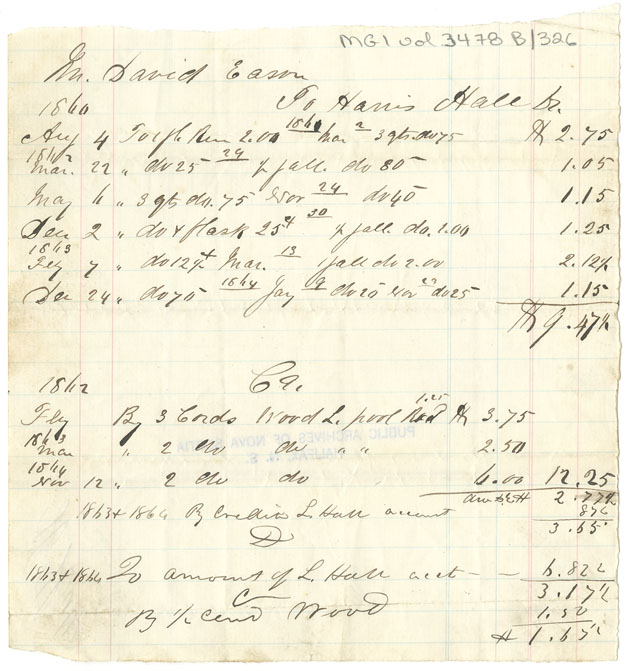 MG1 vol 3478 B/326
Mr. David Eason
1860 To Harris Hall Dr.
Aug 4 To gfl. Rum 2.00 1861 Mar 2 3 qts do 75 $ 2.75
1862
Mar. 22 " do 25 29 ½ gall. do 80 1.05
May 6 " 3 qts do. 75 Nov 24 do 40 1.15
Dec 2 " do & flask 25 ½ gall. do. 1.00 1.25
1863
Feby 7 " do 12½ Mar. 13 1 gall do 2.00 2.12½
Dec 24 " do 70 1864 Jay 9 do 20 Nov 22 do 25 1.15
$ 9.47½
1862 Cr.
Feby By 3 Cords Wood L. pool Road 1.25 $ 3.75
1863
Mar " 2 do do " " 2.50
1864
Nov 12 " 2 do do 6.00 12.25
PUBLIC ARCHIVES OF NOVA SCOTIA
HALIFAX, N. S.
2.77½
1863 & 1864 By Credit L. Hall account 87½
3.65
D
1863 & 1864 To amount of L. Hall acct — 6.82½
3.17½
C
By ½ cord Wood 1.50
$ 1.67½